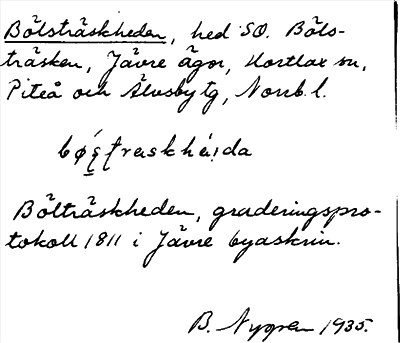 Bölsträskheden, hed SO. Böls-
träsken, Jävre ägor, Hortlax sn,
Piteå och Älvsby tg, Norrb. l.
Bölträskheden, graderingspro-
tokoll 1811 i Jävre byaskrin.
B. Nygren 1935.